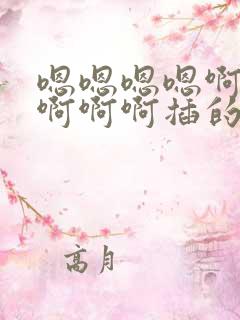 嗯嗯嗯嗯啊
啊啊啊插的
高月